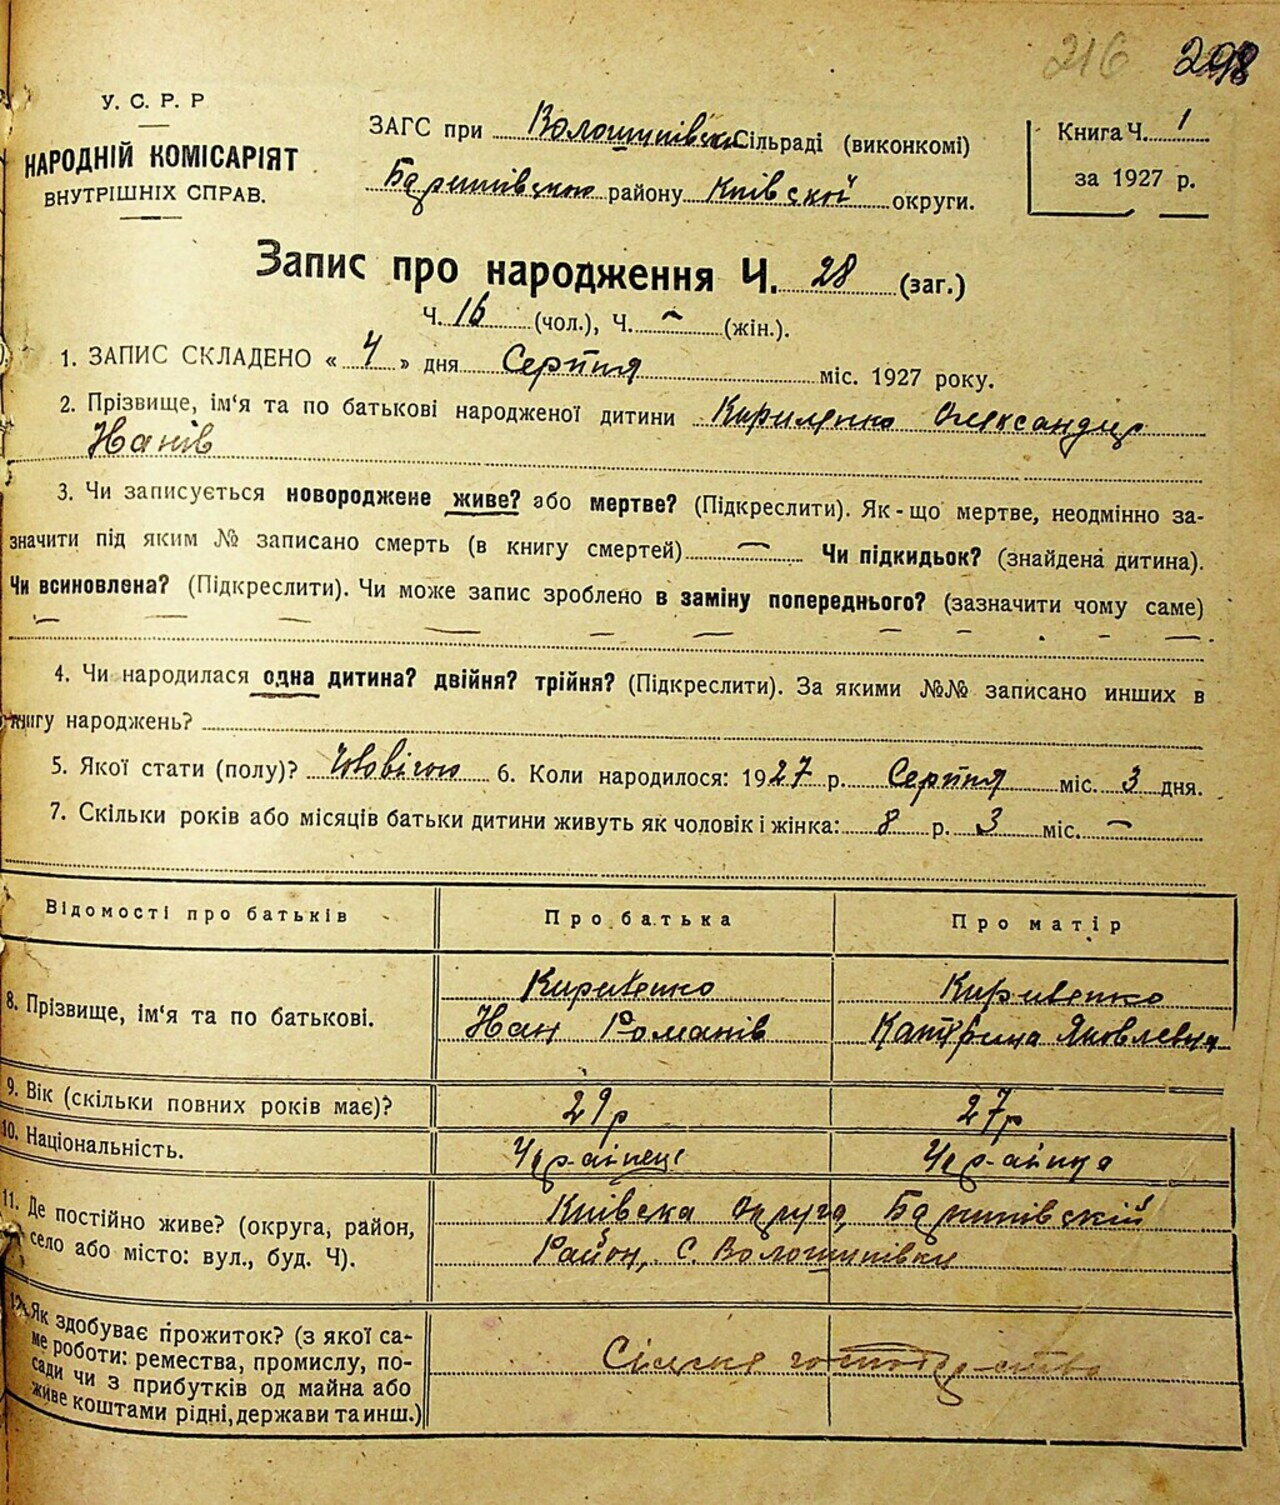 216 298
У. С. Р. Р
НАРОДНІЙ КОМІСАРІЯТ
ВНУТРІШНІХ СПРАВ.
ЗАГС при Волошинівськ Сільраді (виконкомі)
Баришівською району Київской округи.
Книга Ч. 1
за 1927 р.
Запис про народження Ч. 28 (заг.)
Ч. 16 (чол.), Ч. — (жін.).
1. ЗАПИС СКЛАДЕНО « 4 » дня Серпня міс. 1927 року.
2. Прізвище, ім‘я та по батькові народженої дитини Кириленко Олександр
Іванів
3. Чи записується новороджене живе? або мертве? (Підкреслити). Як-що мертве, неодмінно за-
значити під яким № записано смерть (в книгу смертей) — Чи підкидьок? (знайдена дитина).
Чи всиновлена? (Підкреслити). Чи може запис зроблено в заміну попереднього? (зазначити чому саме)
4. Чи народилася одна дитина? двійня? трійня? (Підкреслити). За якими №№ записано инших в
книгу народжень?
5. Якої стати (полу)? 6. Коли народилося: 1927 р. Серпня міс. 3 дня.
7. Скільки років або місяців батьки дитини живуть як чоловік і жінка: 8 р. 3 міс. —
Відомості про батьків Про батька Про матір
8. Прізвище, ім‘я та по батькові. Кириленко Кириленко
Иван Романів Катерина Яковлевна
9. Вік (скільки повних років має)? 29 р 27 р
10. Національність. Укр-аінець Укр-аінка
11. Де постійно живе? (округа, район, Київска округа, Баришівский
село або місто: вул., буд. Ч). Район, С. Волошинівки
12. Як здобуває прожиток? (з якої са-
ме роботи: ремества, промислу, по- Сільске господарство
сади чи з прибутків од майна або
живе коштами рідні, держави та инш.)